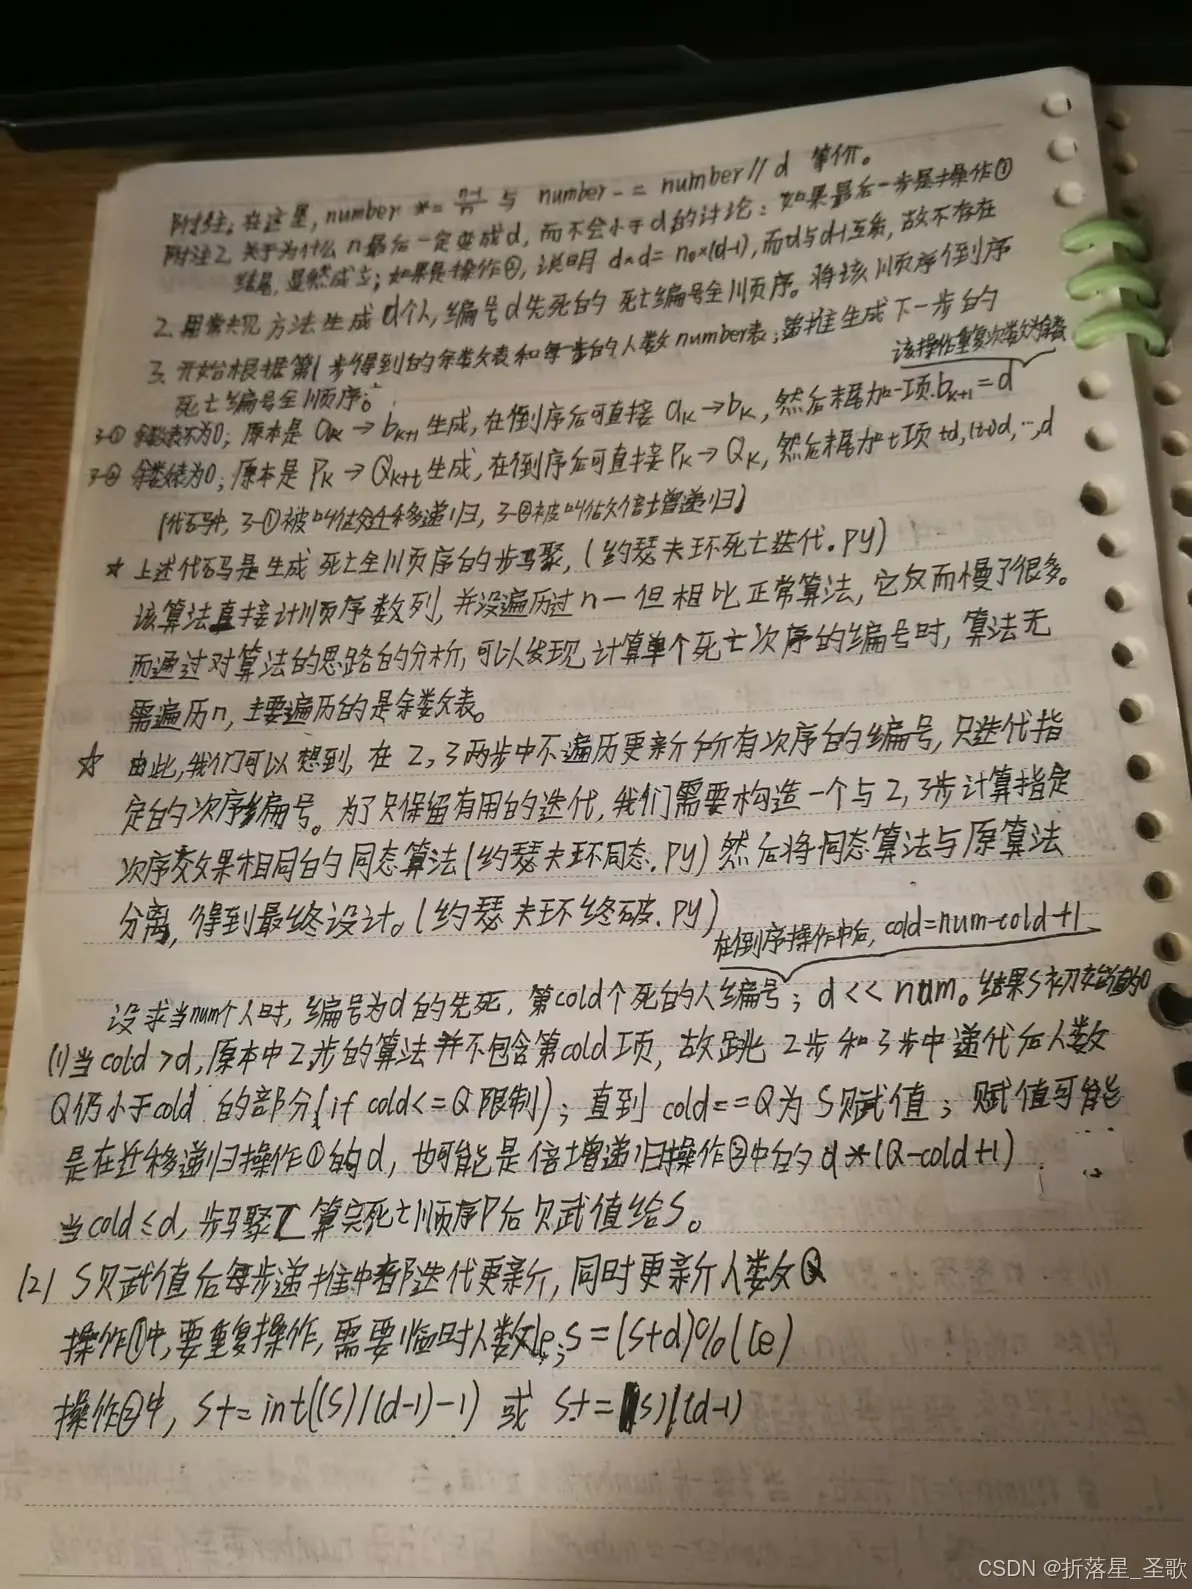 附注1. 在这里, number *= n-1/n 与 number -= number//d 等价。
附注2. 关于为什么n最后一定变成d, 而不会小于d的讨论: 如果最后一步是操作①
结尾, 显然成立; 如果是操作②, 说明 d*d = n₀×(d-1), 而d与d-1互素, 故不存在
2. 用常规方法生成d个人, 编号d先死的死亡编号全顺序。将该顺序倒序
3. 开始根据第1步得到的余数表和每步的人数number表; 递推生成下一步的
死亡编号全顺序。
该操作重复次数为余数
3-① 余数表不为0; 原本是 aₖ→bₖ₊₁生成, 在倒序后可直接 aₖ→bₖ, 然后末尾加一项 bₖ₊₁=d
3-② 余数表为0; 原本是 Pₖ→Qₖ₊ₜ生成, 在倒序后可直接 Pₖ→Qₖ, 然后末尾加t项 td,(t-1)d,…,d
(代码中, 3-①被叫做近移递归, 3-②被叫做倍增递归)
☆ 上述代码是生成死亡全顺序的步骤, (约瑟夫环死亡迭代.py)
该算法直接计顺序数列, 并没遍历过n—但相比正常算法, 它反而慢了很多。
而通过对算法的思路的分析, 可以发现计算单个死亡次序的编号时, 算法无
需遍历n, 主要遍历的是余数表。
☆ 由此, 我们可以想到, 在2,3两步中不遍历更新所有次序的编号, 只迭代指
定的次序编号。为了只保留有用的迭代, 我们需要构造一个与2,3步计算指定
次序效果相同的同态算法(约瑟夫环同态.py) 然后将同态算法与原算法
分离, 得到最终设计。(约瑟夫环终破.py)
在倒序操作中后, cold=num-cold+1
设求当num个人时, 编号为d的先死, 第cold个死的人编号; d<<num。结果S初始值为0
(1)当cold>d, 原本中2步的算法并不包含第cold项, 故跳2步和3步中递代后人数
Q仍小于cold 的部分(if cold<=Q限制); 直到 cold==Q为S赋值; 赋值可能
是在近移递归操作①的d, 也可能是倍增递归操作②中的 d*(Q-cold+1)
当cold≤d, 步骤2算完死亡顺序P后赋值给S。
(2) S赋值后每步递推中都迭代更新, 同时更新人数Q
操作①中, 要重复操作, 需要临时人数le; S=(S+d)%(le)
操作②中, S+=int((S)/(d-1)-1) 或 S+=(S)/(d-1)
CSDN @折落星_圣歌